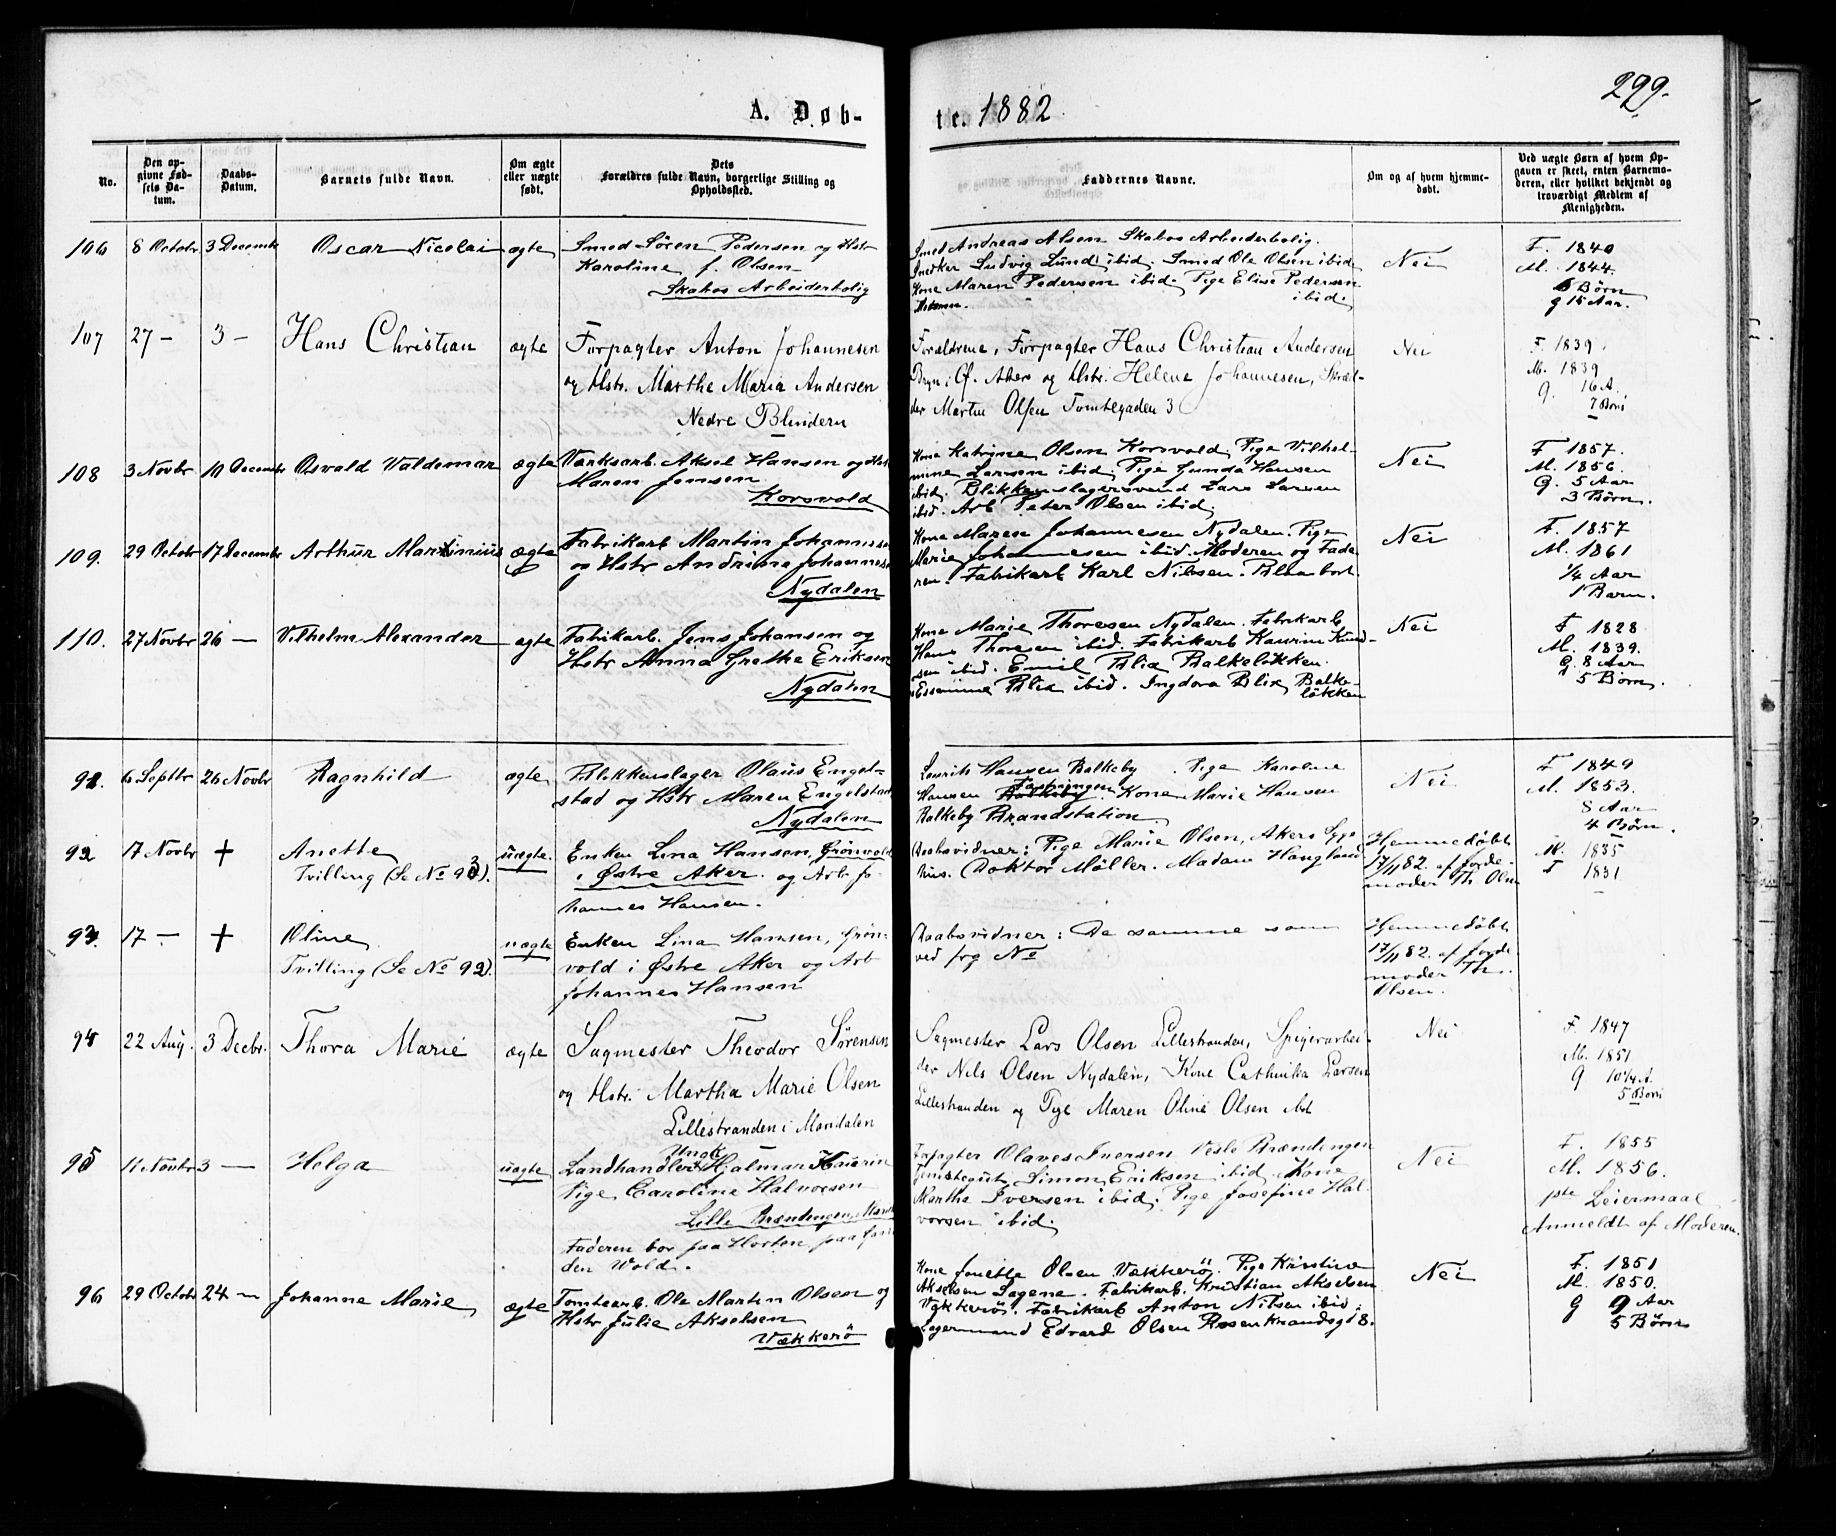 299.
A. Døb-
te. 1882
No.
Den op-
givne Fød-
sels Da-
tum.
Daabs-
Datum.
Barnets fulde Navn.
Om ægte
eller uægte
født.
Dets
Forældres fulde Navn, borgerlige Stilling og
Opholdssted.
Faddernes Navne.
Om og af hvem hjemme-
døbt.
Ved uægte Børn af hvem Op-
gaven er skeet, enten Barnemo-
deren, eller hvilket bekjendt og
troværdigt Medlem af
Menigheden.
106 8 Octobr 3 Decembr Oscar Nicolai ægte
Smed Sören Pedersen og Hstr
Karoline f. Olsen
Skabos Arbeiderbolig
Smed Andreas Olsen Skabos Arbeiderbolig.
Snedker Ludvig Lund ibid. Smed Ole Olsen ibid
Kone Maren Pedersen ibid. Pige Elise Pedersen
ibid.
Nei
F. 1840
M. 1844.
Börn
g 15 Aar.
107 27 — 3 — Hans Christian ægte
Forpagter Anton Johannesen
og Hstr. Marthe Maria Andersen
Nedre Blindern
Forældrene, Forpagter Hans Christian Andersen
Bryn i Ø. Aker og Hstr. Helene Johannesen, Skræd-
der Martin Olsen Tomtegaden 3
Nei
F. 1839.
M. 1839
g. 16 A.
7 Börn
108 3 Novbr 10 Decembr Osvald Valdemar ægte
Værksarb. Aksel Hansen og Hstr
Maren Jensen
Korsvold
Kone Katrine Olsen Korsvold, Pige Vilhel-
mine Larsen ibid, Pige Gunda Hansen
ibid. Blikkenslagersvend Lars Larsen
ibid. Arb Peter Olsen ibid.
Nei
F 1857.
M. 1856.
G. 5 Aar
3 Börn.
109. 29 Octobr 17 Decembr Arthur Martinius ægte
Fabrikarb Martin Johannesen
og Hstr Andrine Johannesen
Nydalen
Kone Maren Johannesen Nydalen. Pige
Marie Johannesen ibid. Moderen og Fade
ren. Fabrikarb Karl Nilssen.
Nei
F. 1857
M. 1861
1/4 Aar
1 Barn.
110. 27 Novbr 26 — Vilhelm Alexander ægte
Fabrikarb. Jens Johansen og
Hstr Anna Grethe Eriksen
Nydalen
Kone Marie Thoresen Nydalen. Fabrikarb
Hans Thoresen ibid. Fabrikarb Knud-
sen ibid. Emil Blix Balkelökken.
Blix ibid. Ingdora Blix, Balke-
lökken
Nei
F 1828
M. 1839.
G. 8 Aar
5 Börn.
91. 6 Septbr 26 Novbr Ragnhild ægte
Blikkenslager Olaus Engel-
stad og Hstr Maren Engelstad
Nydalen
Laurits Hansen Balkeby. Pige Karoline
Hansen Kone Marie Hansen
Balkeby Brandstation.
Nei
F 1849
M. 1853.
8 Aar
4 Börn.
92 17 Novbr + Anette
Tvilling (Se No 93).
uægte.
Enken Lina Hansen, Grönvold
i Østre Aker. og Arb Jo-
hannes Hansen.
Daabsvidner: Pige Marie Olsen, Akers Syge
hus. Doktor Møller. Madam Haugland
Hjemmedöbt
17/11 82. af Jorde-
moder Th Olsen
M. 1835
F 1831
93. 17 — + Oline
Tvilling (Se No 92).
uægte
Enken Lina Hansen, Grön-
vold i Østre Aker og Arb
Johannes Hansen
Daabsvidner: De samme som
ved frg No
Hjemmedöbt
17/11 82. af Jorde
moder Th.
Olsen.
94 22 Aug. 3 Decbr. Thora Marie ægte
Sagmester Theodor Sörensen
og Hstr. Martha Marie Olsen
Lillestranden i Maridalen
Sagmester Lars Olsen Lillestranden, Spigerarbei-
der Nils Olsen Nydalen, Kone Cathrika Larsen
Lillestranden og Pige Maren Oline Olsen ibd
Nei
F. 1847
M. 1851
g 10 1/4 A.
5 Börn
95 11 Novbr 3 — Helga uægte
Ungk
Landhandler Hjalmar Haurin
Pige Caroline Halvorsen
Lille Brændingen, Marid
Faderen bor paa Horten, paa
den Wold.
Forpagter Olaves Iversen Vesle Brændingen
Simon Eriksen ibid, Kone
Martha Iversen ibid. Pige Josefine Hal-
vorsen ibid.
Nei
F. 1855
M. 1856.
1ste Leiermaal
Anmeldt af Moderen.
96 29 Octobr 24 — Johanne Marie ægte
Tomtearb. Ole Martin Olsen og
Hstr Julie Akselsen
Vækkerö
Kone Jonette Olsen Vækkerö. Pige Kristine
Akselsen Sagene. Fabrikarb. Kristian Akselsen
Vækkerö. Fabrikarb Anton Nilsen ibid.
Lagermand Edvard Olsen Rosenkrandsgd 8.
Nei
F. 1851
M. 1850.
G 9 Aar
5 Börn